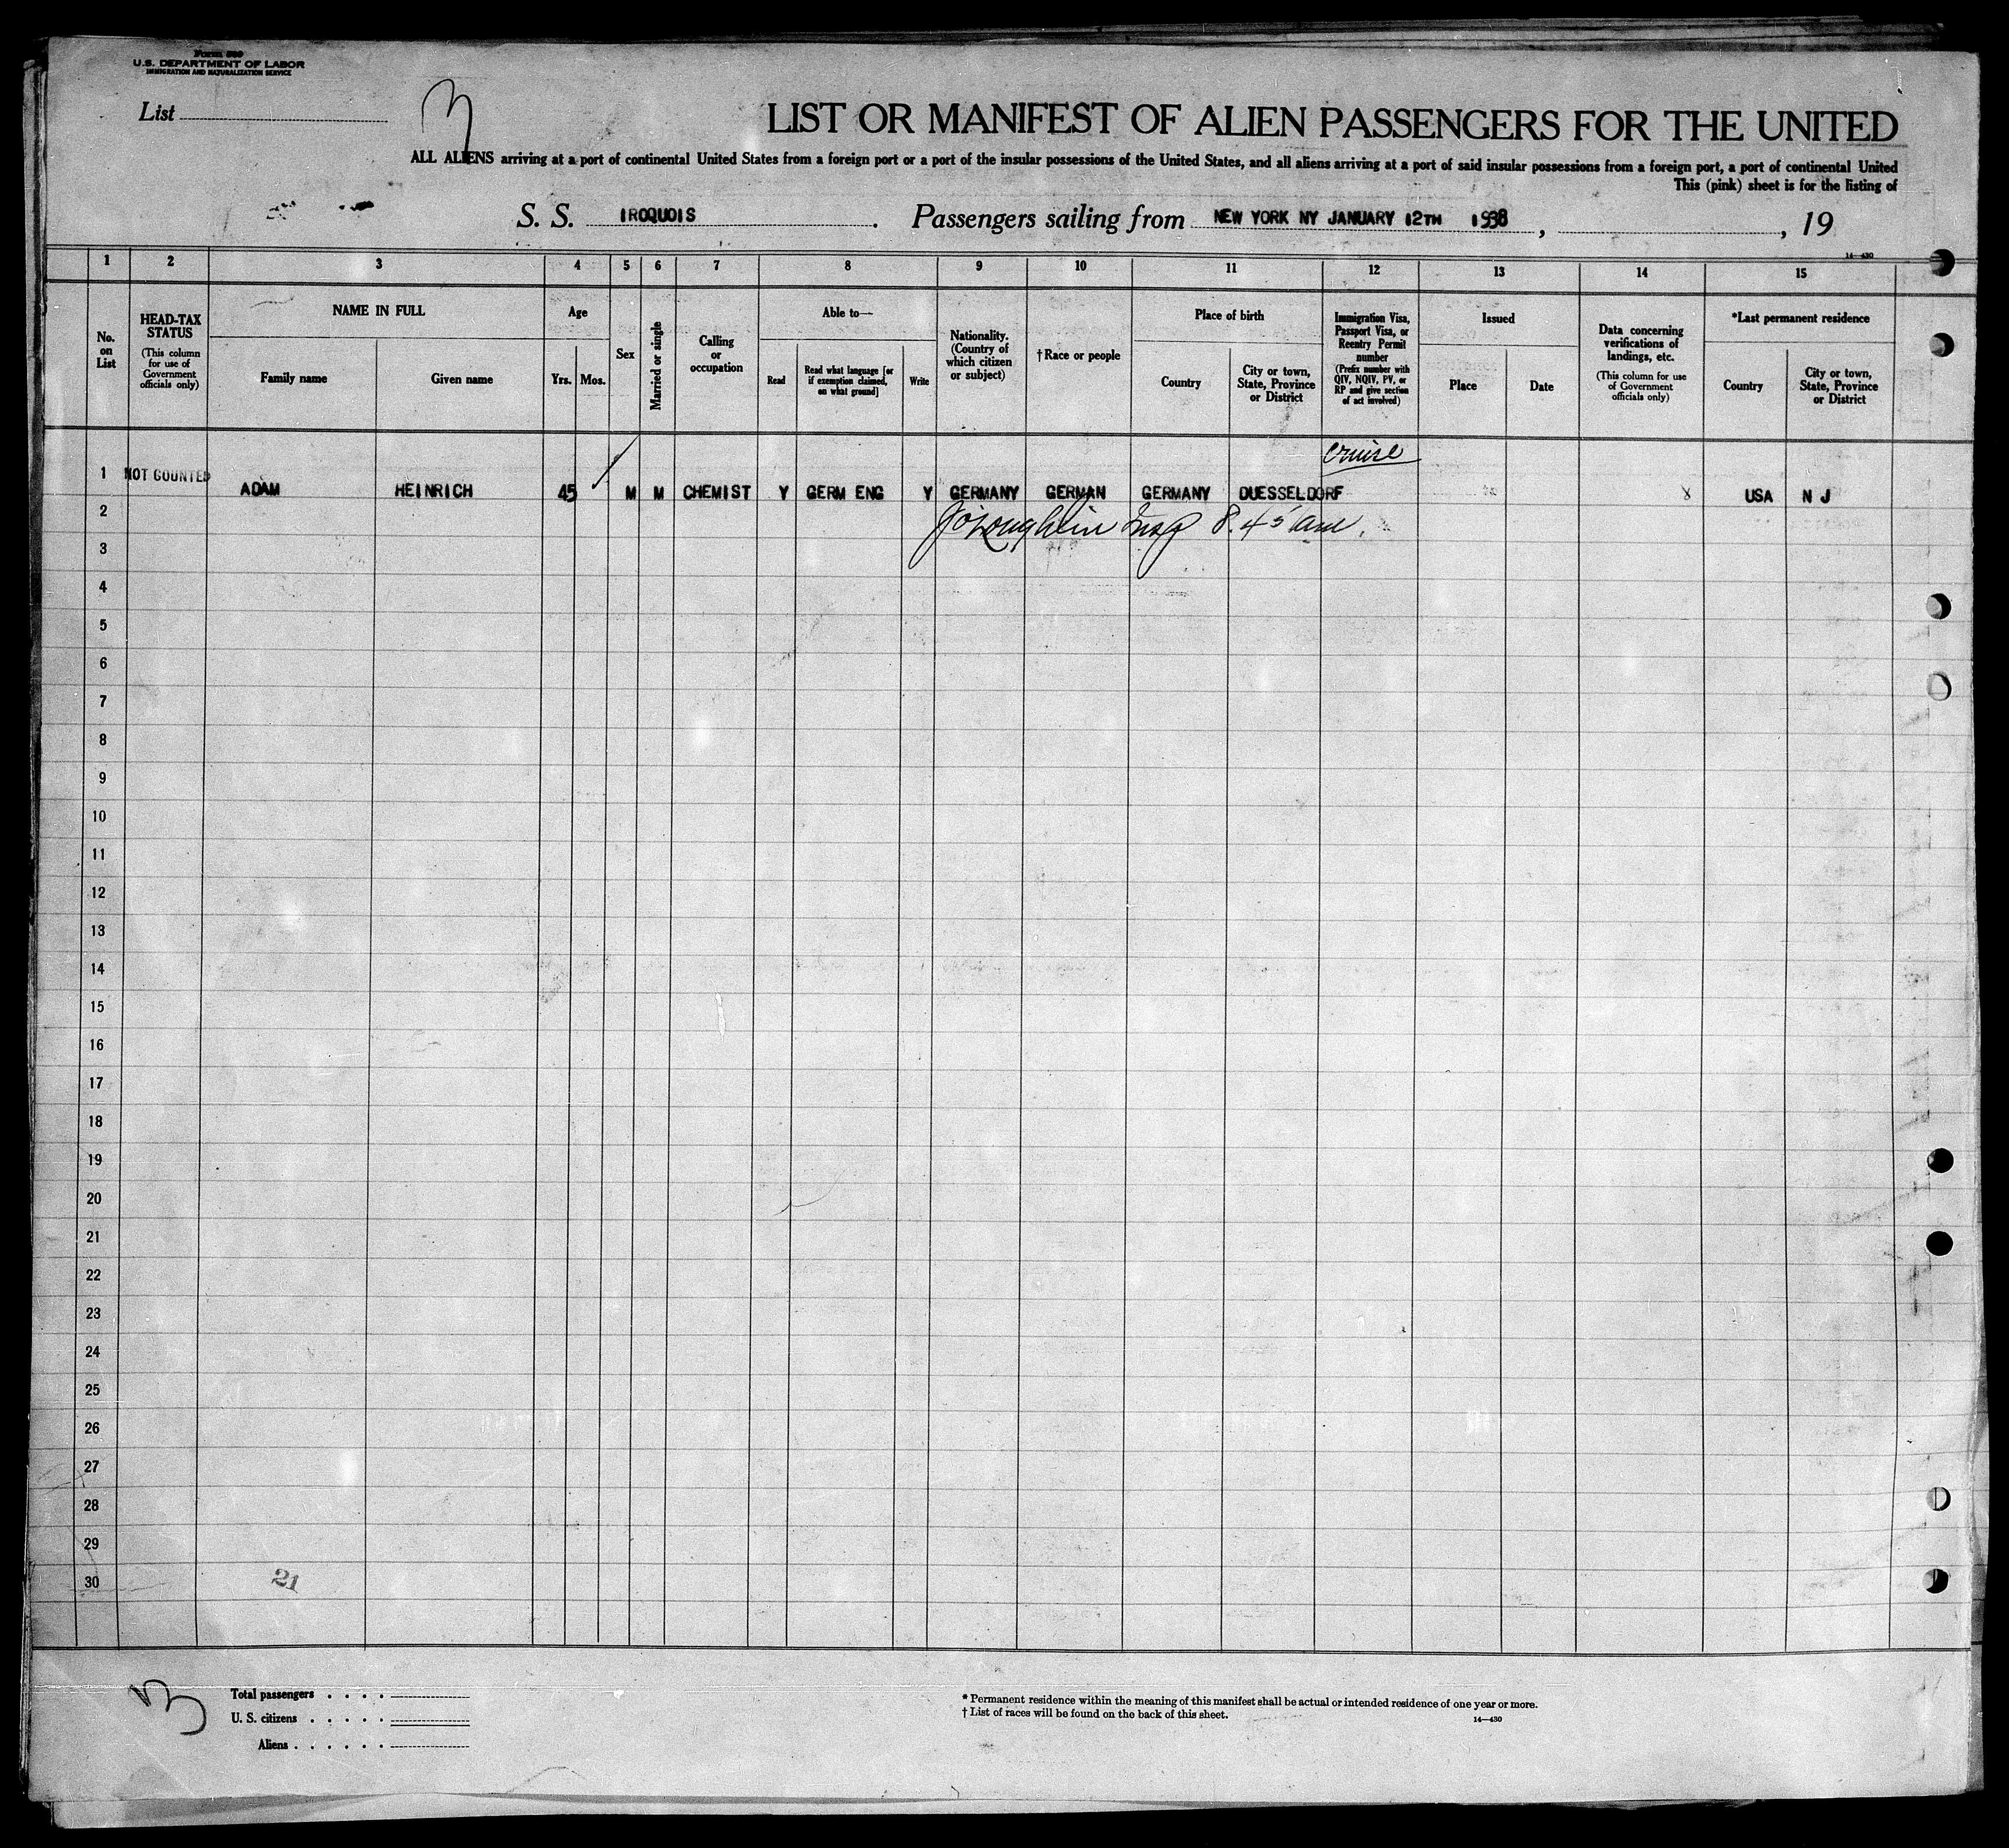 Form 500
U.S. DEPARTMENT OF LABOR
IMMIGRATION AND NATURALIZATION SERVICE
List
3
LIST OR MANIFEST OF ALIEN PASSENGERS FOR THE UNITED
ALL ALIENS arriving at a port of continental United States from a foreign port or a port of the insular possessions of the United States, and all aliens arriving at a port of said insular possessions from a foreign port, a port of continental United
This (pink) sheet is for the listing of
S. S. IROQUOIS. Passengers sailing from NEW YORK NY JANUARY 12TH 1938, , 19
14—430
1 2 3 4 5 6 7 8 9 10 11 12 13 14 15
No. on List
HEAD-TAX STATUS
(This column for use of Government officials only)
NAME IN FULL
Family name
Given name
Age
Yrs. Mos.
Sex
Married or single
Calling or occupation
Able to—
Read
Read what language [or if exemption claimed, on what ground]
Write
Nationality. (Country of which citizen or subject)
†Race or people
Place of birth
Country
City or town, State, Province or District
Immigration Visa, Passport Visa, or Reentry Permit number
(Prefix number with QIV, NQIV, PV, or RP and give section of act involved)
Issued
Place
Date
Data concerning verifications of landings, etc.
(This column for use of Government officials only)
*Last permanent residence
Country
City or town, State, Province or District
cruise
1 NOT COUNTED ADAM HEINRICH 45 M M CHEMIST Y GERM ENG Y GERMANY GERMAN GERMANY DUESSELDORF USA N J
2 J O'Loughlin Insp 8.45 am.
3
4
5
6
7
8
9
10
11
12
13
14
15
16
17
18
19
20
21
22
23
24
25
26
27
28
29
30
21
3
Total passengers
U. S. citizens
Aliens
* Permanent residence within the meaning of this manifest shall be actual or intended residence of one year or more.
† List of races will be found on the back of this sheet.
14—430